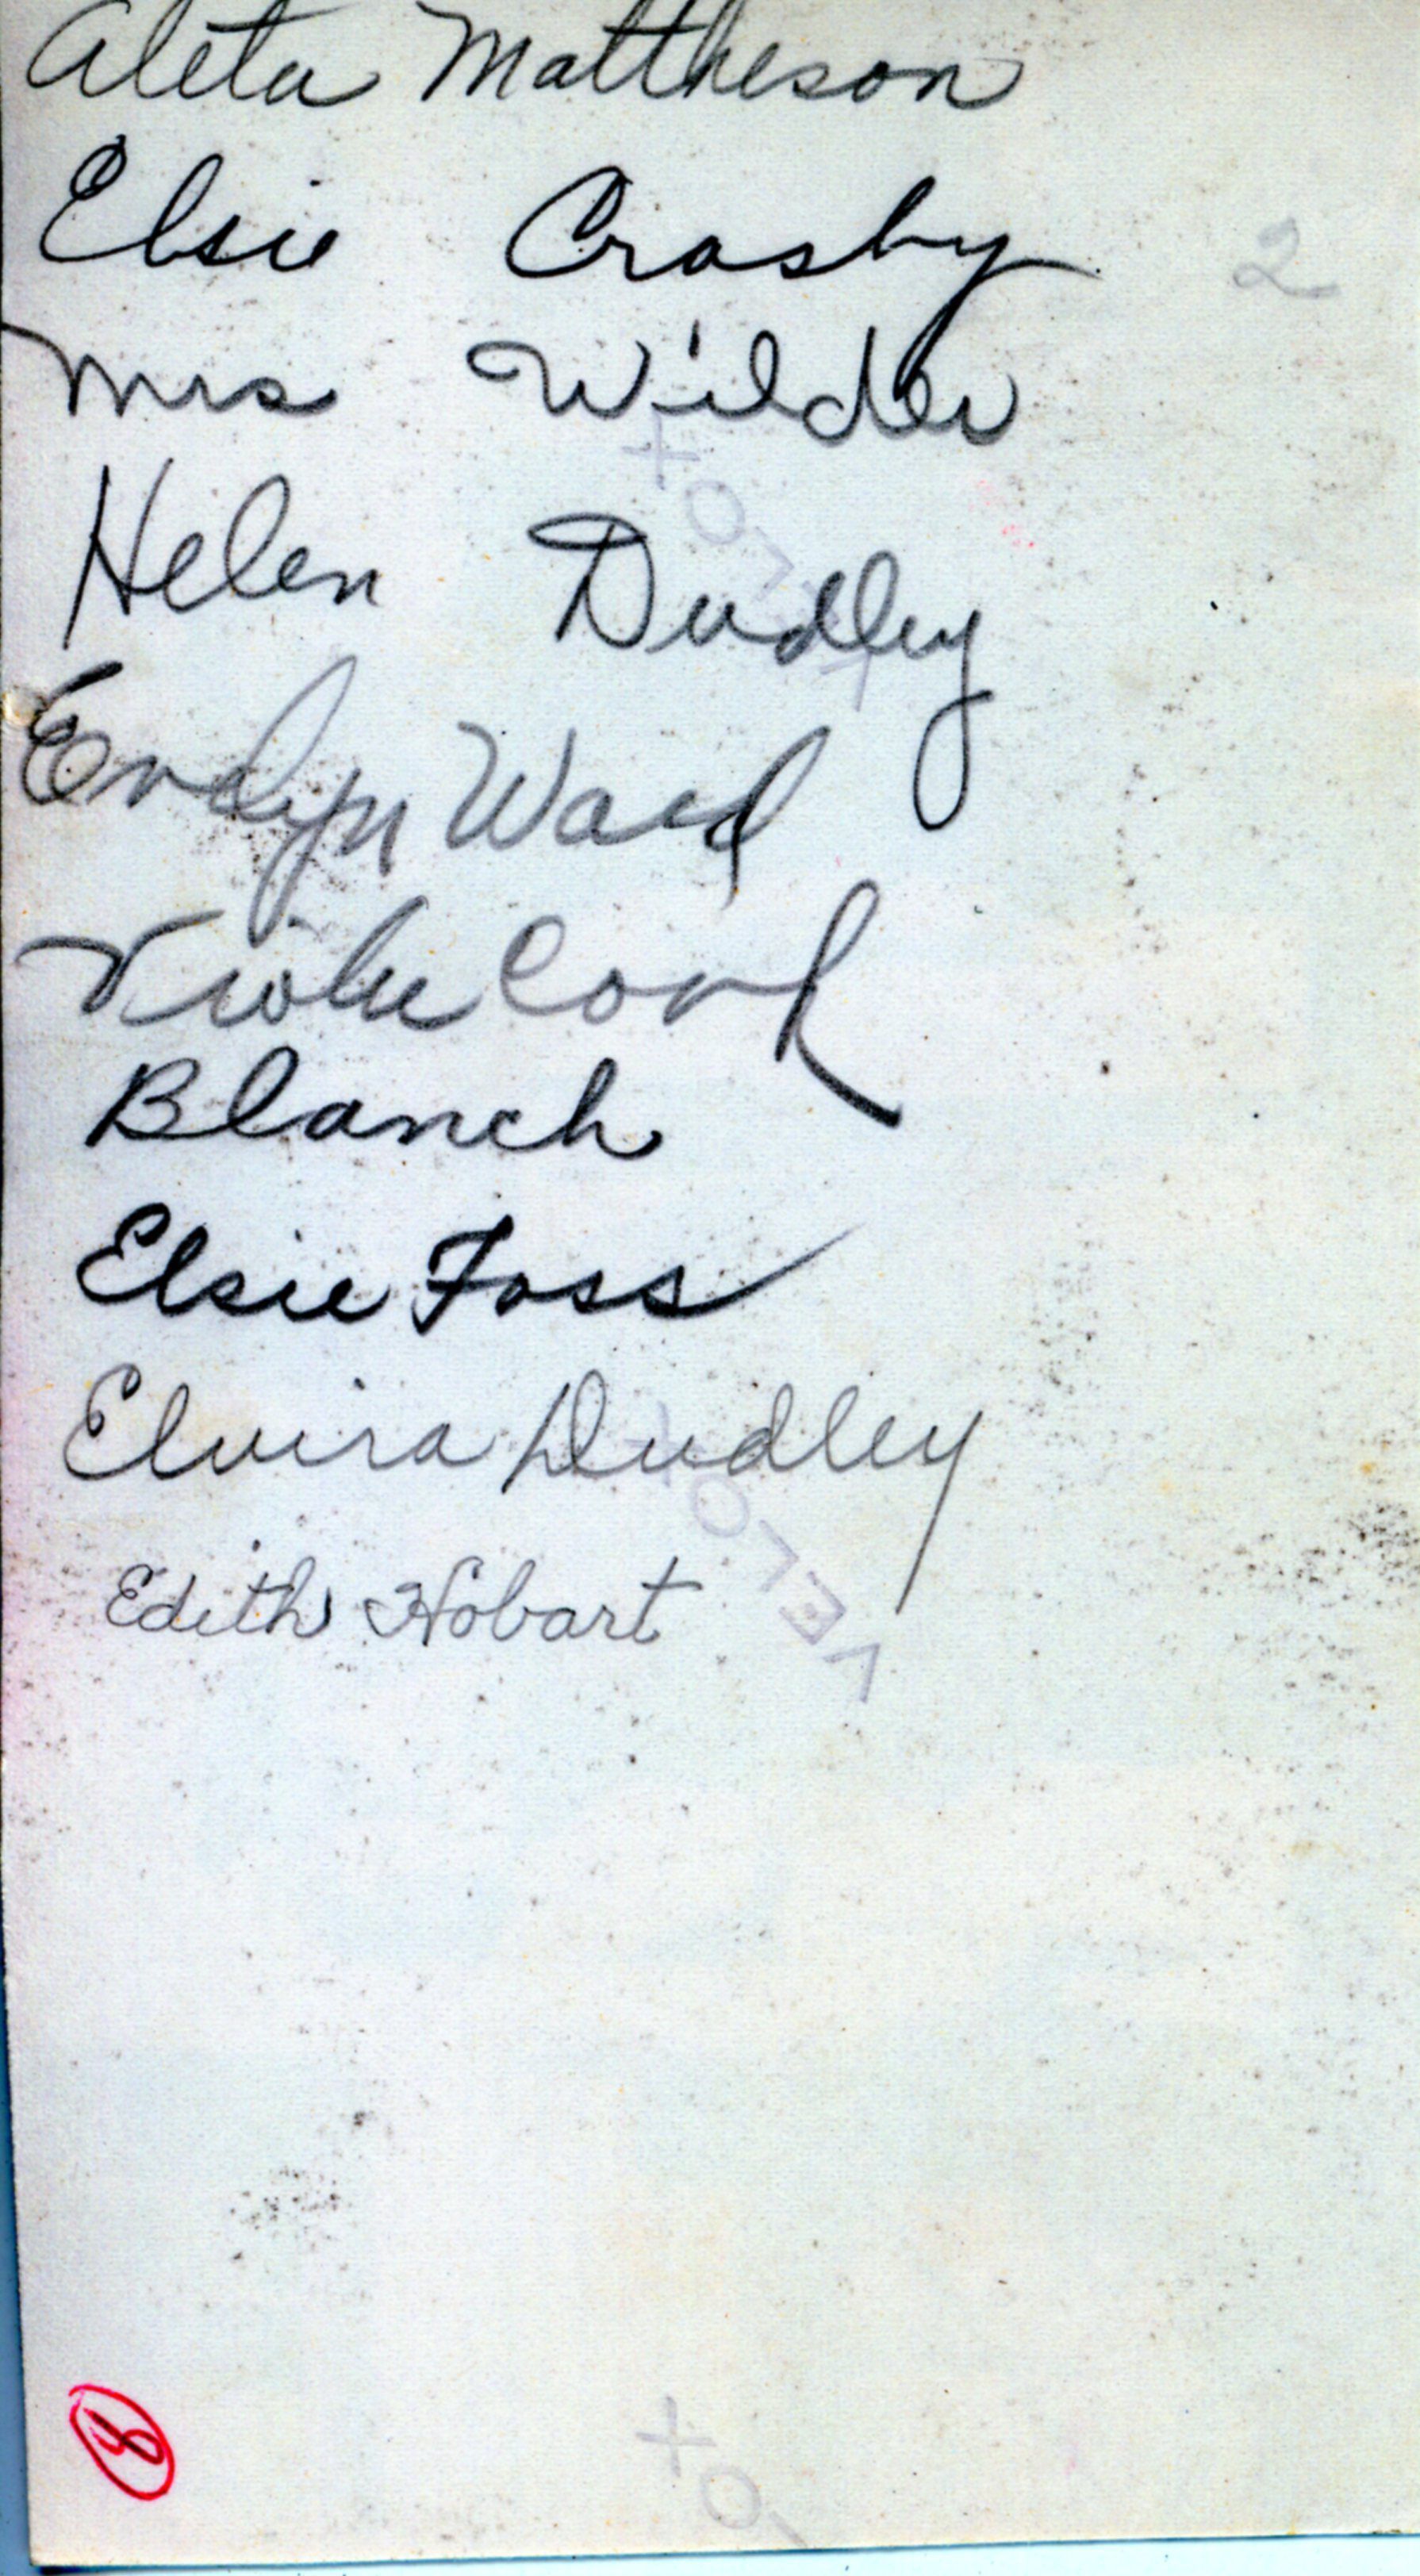 Aleta Mattheson
Elsie Crosby
2
Mrs Wilder
Helen Dudley
Evelyn Ward
Viola Cook
Blanch
Elsie Foss
Elvira Dudley
Edith Hobart
VELOX
8